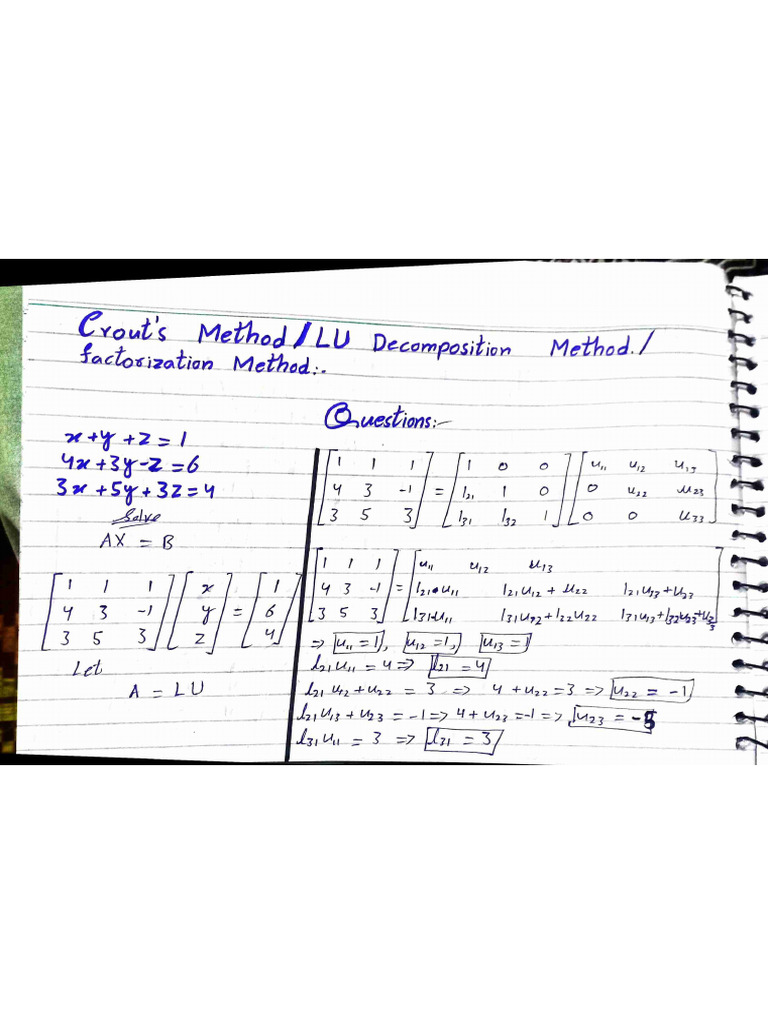 Crout's Method/LU Decomposition Method./
factorization Method:-
Questions:-
x+y+z=1
4x+3y-z=6
3x+5y+3z=4
Solve
AX = B
[1 1 1
4 3 -1
3 5 3] [x
y
z] = [1
6
4]
Let
A = LU
[1 1 1
4 3 -1
3 5 3] = [1 0 0
l21 1 0
l31 l32 1] [u11 u12 u13
0 u22 u23
0 0 u33]
[1 1 1
4 3 -1
3 5 3] = [u11 u12 u13
l21·u11 l21u12 + u22 l21u13+u23
l31·u11 l31u12+l22u22 l31u13+l32u23+u33]
⇒ u11 = 1, u12 = 1, u13 = 1
l21u11 = 4 ⇒ l21 = 4
l21u12+u22 = 3 ⇒ 4+u22=3 ⇒ u22 = -1
l21u13+u23 = -1 ⇒ 4+u23=-1 ⇒ u23 = -5
l31u11 = 3 ⇒ l31 = 3